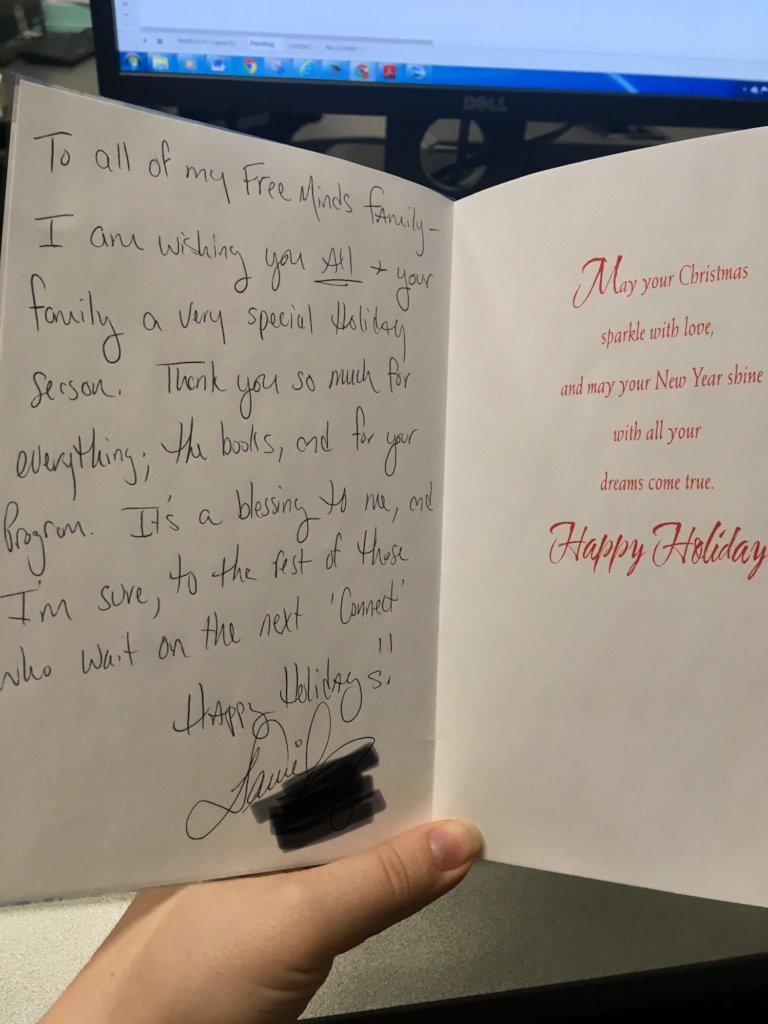 To all of my Free Minds family-
I am wishing you All + your
family a very special Holiday
Season. Thank you so much for
everything; the books, and for your
Program. It's a blessing to me, and
I'm sure, to the rest of those
who wait on the next 'Connect'
Happy Holidays!!
May your Christmas
sparkle with love,
and may your New Year shine
with all your
dreams come true.
Happy Holiday
DELL
Pending
Contact
No Contact